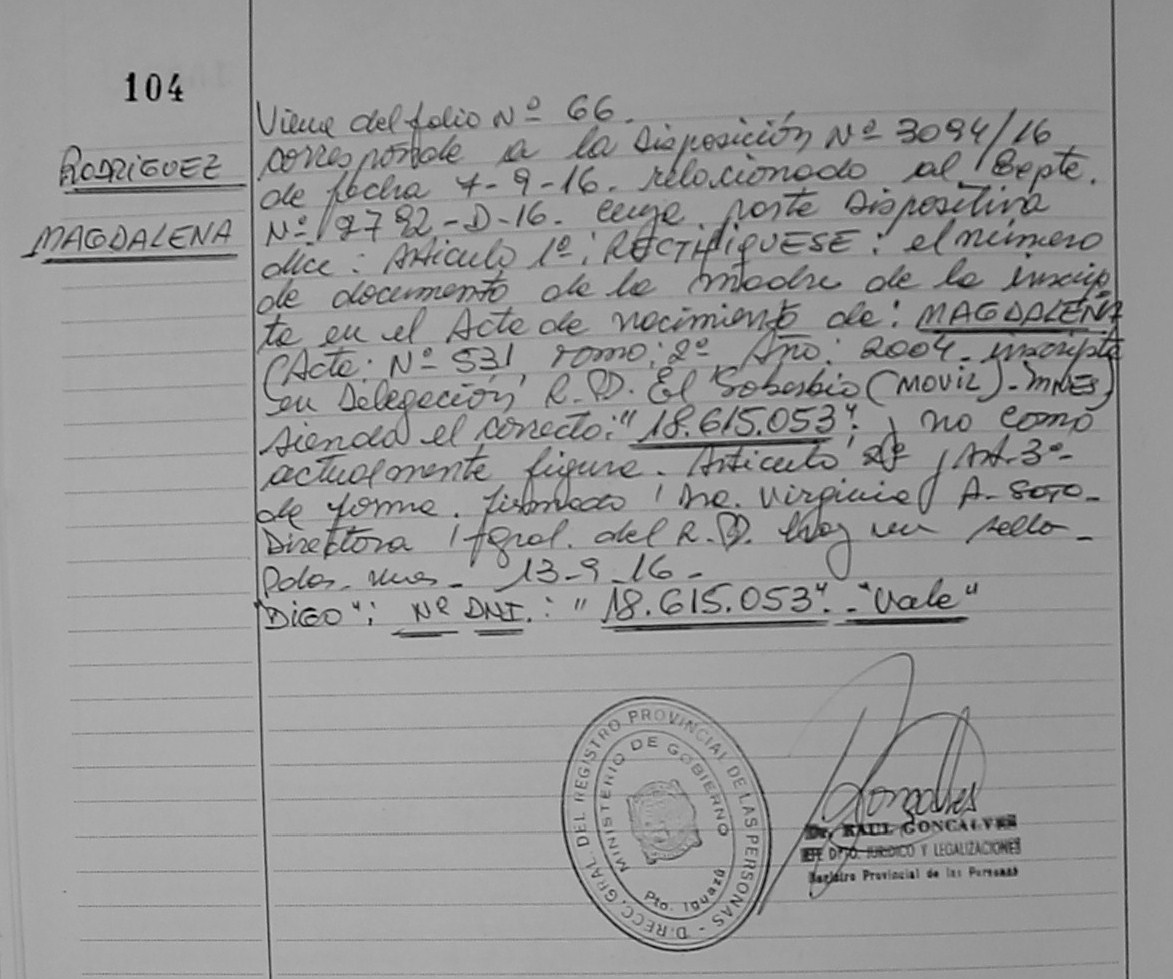 104
RODRIGUEZ
MAGDALENA
Viene del folio Nº 66.
corresponde a la Disposición Nº 3094/16
de fecha 7-9-16. relacionado al Expte.
Nº 9782-D-16. cuya parte Dispositiva
dice: Articulo 1º: RECTIFIQUESE: el número
de documento de la madre de la inscrip
ta en el Acta de nacimiento de: MAGDALENA
(Acta: Nº 531, Tomo: 2º Año: 2004. inscripta
en Delegación R.P. El Soberbio (MOVIL)-MNES)
siendo el correcto: "18.615.053". y no como
actualmente figura. Articulo 2º y Art. 3º-
de forma. firmado: Dra. Virginia A. SOTO-
Directora Gral. del R.P. Hay un sello-
Pdas. Mnes- 13-9-16-
"DIGO": Nº DNI.: "18.615.053". -"Vale"
DIRECC. GRAL. DEL REGISTRO PROVINCIAL DE LAS PERSONAS -
MINISTERIO DE GOBIERNO
Pto. Iguazú
Dr. RAUL GONCALVES
JEFE DPTO. JURIDICO Y LEGALIZACIONES
Registro Provincial de las Personas